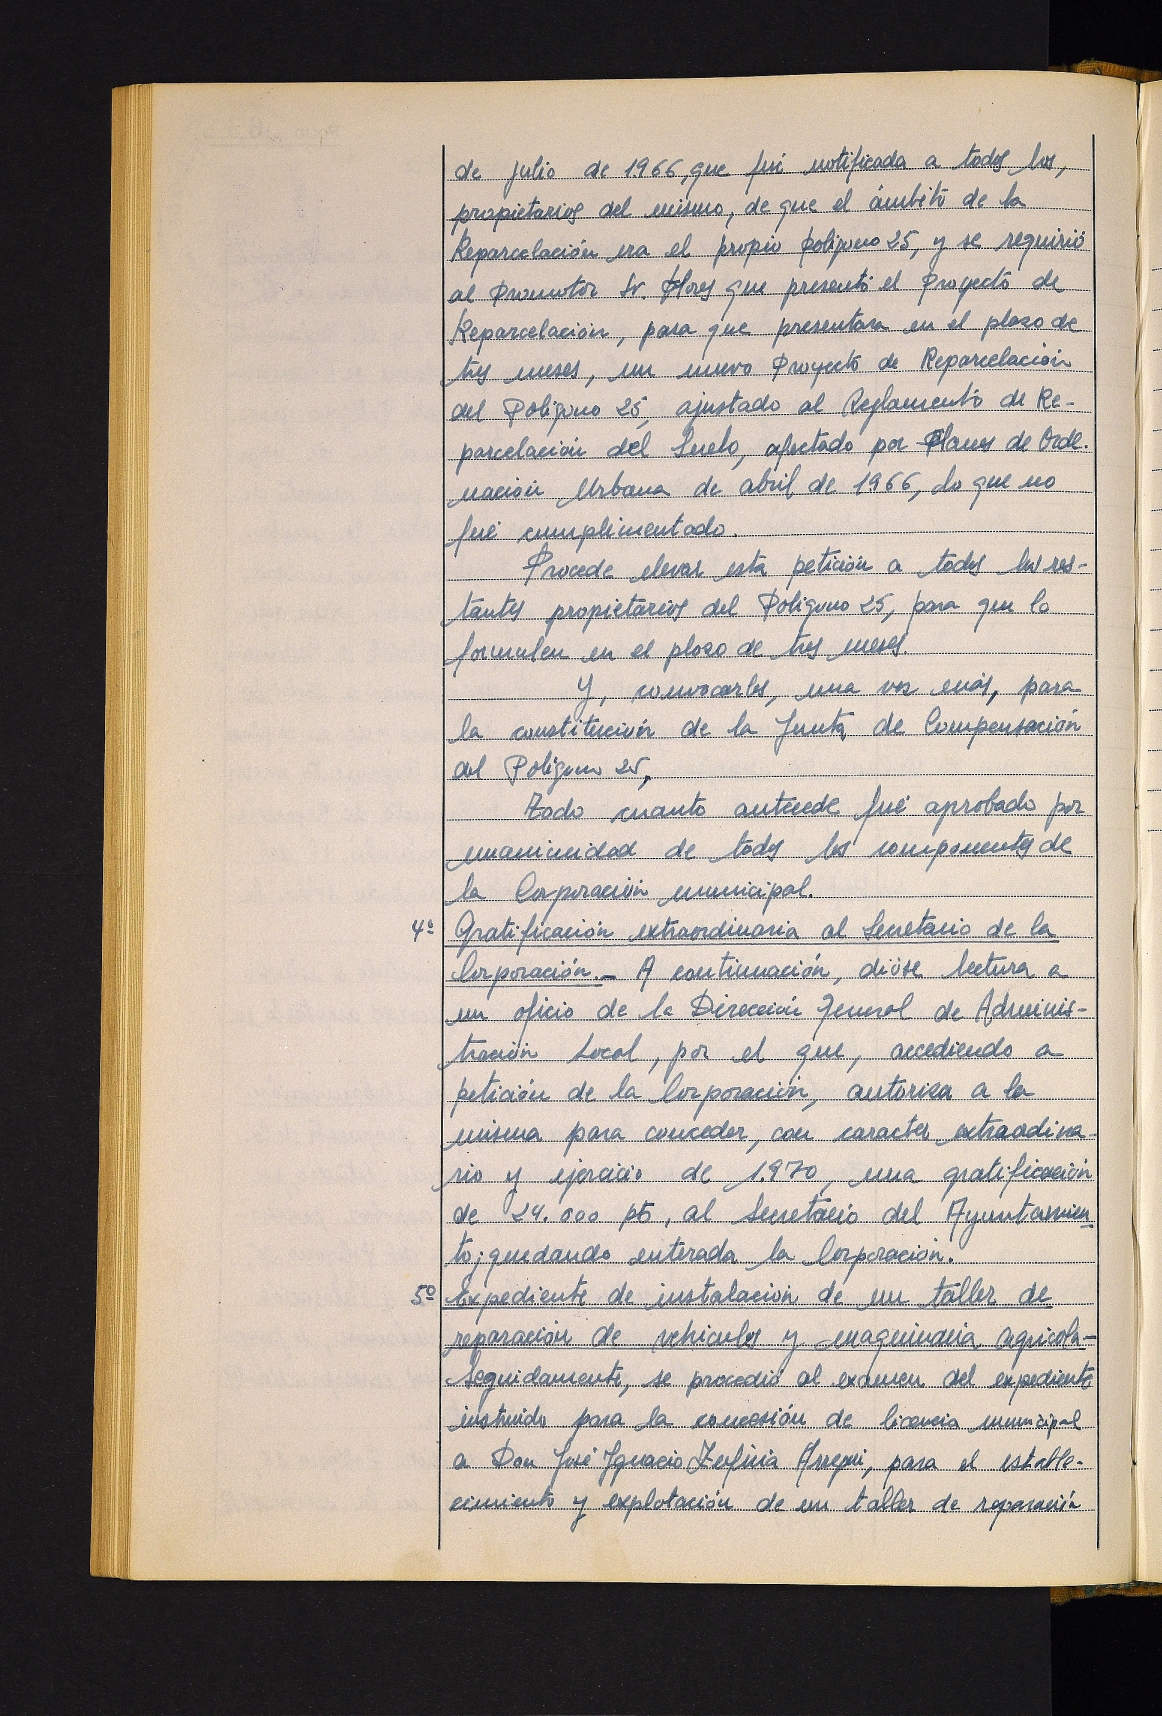 de julio de 1966, que fué notificada a todos los,
propietarios del mismo, de que el ámbito de la
Reparcelación era el propio polígono 25, y se requirió
al Promotor Sr. Flores que presentó el Proyecto de
Reparcelación, para que presentara en el plazo de
tres meses, un nuevo Proyecto de Reparcelación
del Polígono 25, ajustado al Reglamento de Re-
parcelación del Suelo, afectado por Planes de Orde-
nación Urbana de abril de 1966, lo que no
fué cumplimentado.
Procede elevar esta petición a todos los res-
tantes propietarios del Polígono 25, para que lo
formulen en el plazo de tres meses.
Y, convocarles, una vez más, para
la constitución de la Junta de Compensación
del Polígono 25,
Todo cuanto antecede fué aprobado por
unanimidad de todos los componentes de
la Corporación municipal.
4º Gratificación extraordinaria al Secretario de la
Corporación.- A continuación, dióse lectura a
un oficio de la Dirección General de Adminis-
tración Local, por el que, accediendo a
petición de la Corporación, autoriza a la
misma para conceder, con caracter extraodina-
rio y ejercicio de 1.970, una gratificación
de 24.000 pts, al Secretario del Ayuntamien-
to; quedando enterada la Corporación.
5º Expediente de instalación de un taller de
reparación de vehiculos y maquinaria agricola-
Seguidamente, se procedió al examen del expediente
instruido para la concesión de licencia municipal
a Don José Ignacio Arregui, para el estable-
cimiento y explotación de un taller de reparación